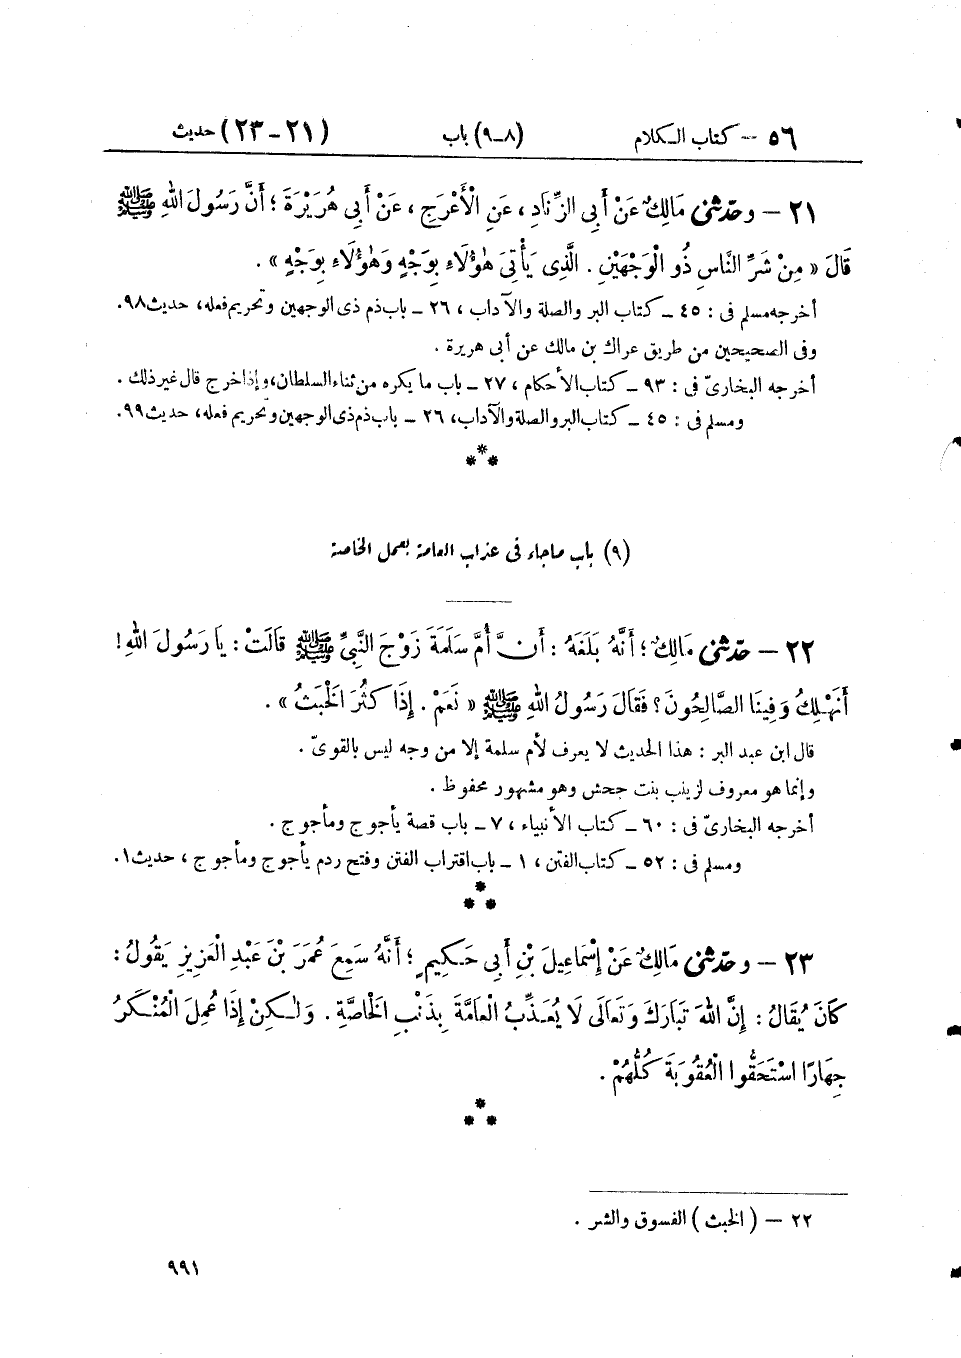 ٥٦ — كتاب الكلام (٨-٩) باب (٢١-٢٣) حديث
٢١ — وحدّثني مَالِكٌ عَنْ أَبِي الزِّنَادِ، عَنِ الْأَعْرَجِ، عَنْ أَبِي هُرَيْرَةَ؛ أَنَّ رَسُولَ اللهِ ﷺ
قَالَ « مِنْ شَرِّ النَّاسِ ذُو الْوَجْهَيْنِ. الَّذِي يَأْتِي هٰؤُلَاءِ بِوَجْهٍ وَهٰؤُلَاءِ بِوَجْهٍ ».
أخرجه مسلم فى : ٤٥ ـ كتاب البر والصلة والآداب ، ٢٦ ـ باب ذم ذى الوجهين وتحريم فعله، حديث ٩٨.
وفى الصحيحين من طريق عراك بن مالك عن أبى هريرة .
أخرجه البخارىّ فى : ٩٣ ـ كتاب الأحكام ، ٢٧ ـ باب ما يكره من ثناء السلطان، وإذا خرج قال غير ذلك .
ومسلم فى : ٤٥ ـ كتاب البر والصلة والآداب، ٢٦ ـ باب ذم ذى الوجهين وتحريم فعله، حديث ٩٩.
***
(٩) باب ماجاء فى عذاب العامة بعمل الخاصة
٢٢ — حدّثني مَالِكٌ؛ أَنَّهُ بَلَغَهُ : أَنَّ أُمَّ سَلَمَةَ زَوْجَ النَّبِيِّ ﷺ قَالَتْ : يَا رَسُولَ اللهِ!
أَنَهْلِكُ وَفِينَا الصَّالِحُونَ؟ فَقَالَ رَسُولُ اللهِ ﷺ « نَعَمْ. إِذَا كَثُرَ الْخَبَثُ ».
قال ابن عبد البر : هذا الحديث لا يعرف لأم سلمة إلا من وجه ليس بالقوىّ .
وإنما هو معروف لزينب بنت جحش وهو مشهور محفوظ .
أخرجه البخارىّ فى : ٦٠ ـ كتاب الأنبياء ، ٧ ـ باب قصة يأجوج ومأجوج .
ومسلم فى : ٥٢ ـ كتاب الفتن ، ١ ـ باب اقتراب الفتن وفتح ردم يأجوج ومأجوج ، حديث ١.
***
٢٣ — وحدّثني مَالِكٌ عَنْ إِسْمَاعِيلَ بْنِ أَبِي حَكِيمٍ؛ أَنَّهُ سَمِعَ عُمَرَ بْنَ عَبْدِ الْعَزِيزِ يَقُولُ :
كَانَ يُقَالُ : إِنَّ اللهَ تَبَارَكَ وَتَعَالَى لَا يُعَذِّبُ الْعَامَّةَ بِذَنْبِ الْخَاصَّةِ. وَلٰكِنْ إِذَا عُمِلَ الْمُنْكَرُ
جِهَارًا اسْتَحَقُّوا الْعُقُوبَةَ كُلُّهُمْ.
***
٢٢ — ( الخبث ) الفسوق والشر .
٩٩١